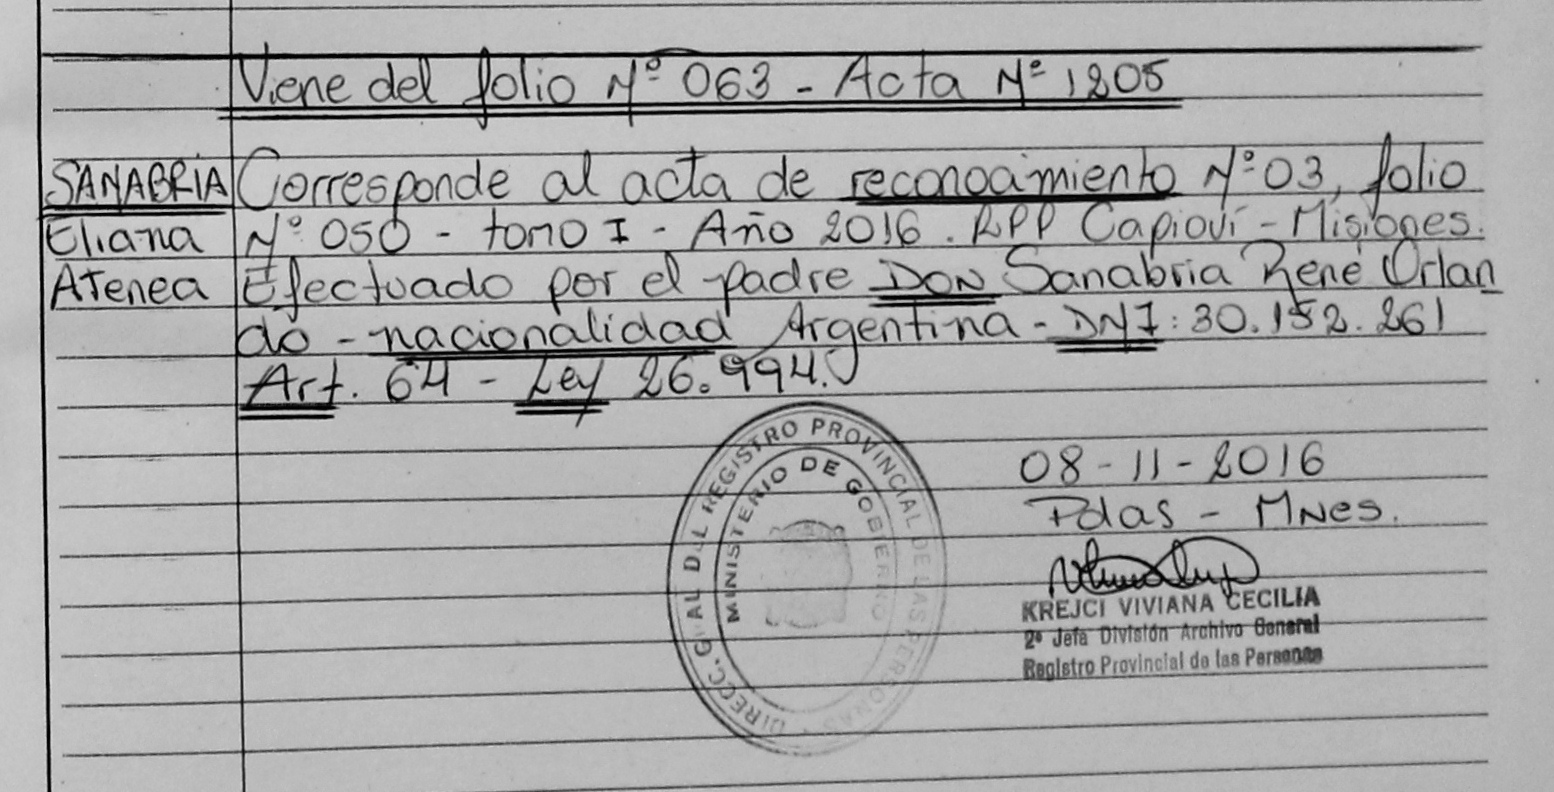 Viene del folio Nº 063 - Acta Nº 1205
SANABRIA
Eliana
Atenea
Corresponde al acta de reconocimiento Nº 03, folio
Nº 050 - tomo I - Año 2016. RPP Capioví - Misiones.
Efectuado por el padre DON Sanabria René Orlan
do - nacionalidad Argentina - DNI: 30.152.261
Art. 64 - Ley 26.994.
DIRECC. GRAL DEL REGISTRO PROVINCIAL DE LAS PERSONAS
MINISTERIO DE GOBIERNO
08-11-2016
Pdas - Mnes.
KREJCI VIVIANA CECILIA
2º Jefa División Archivo General
Registro Provincial de las Personas